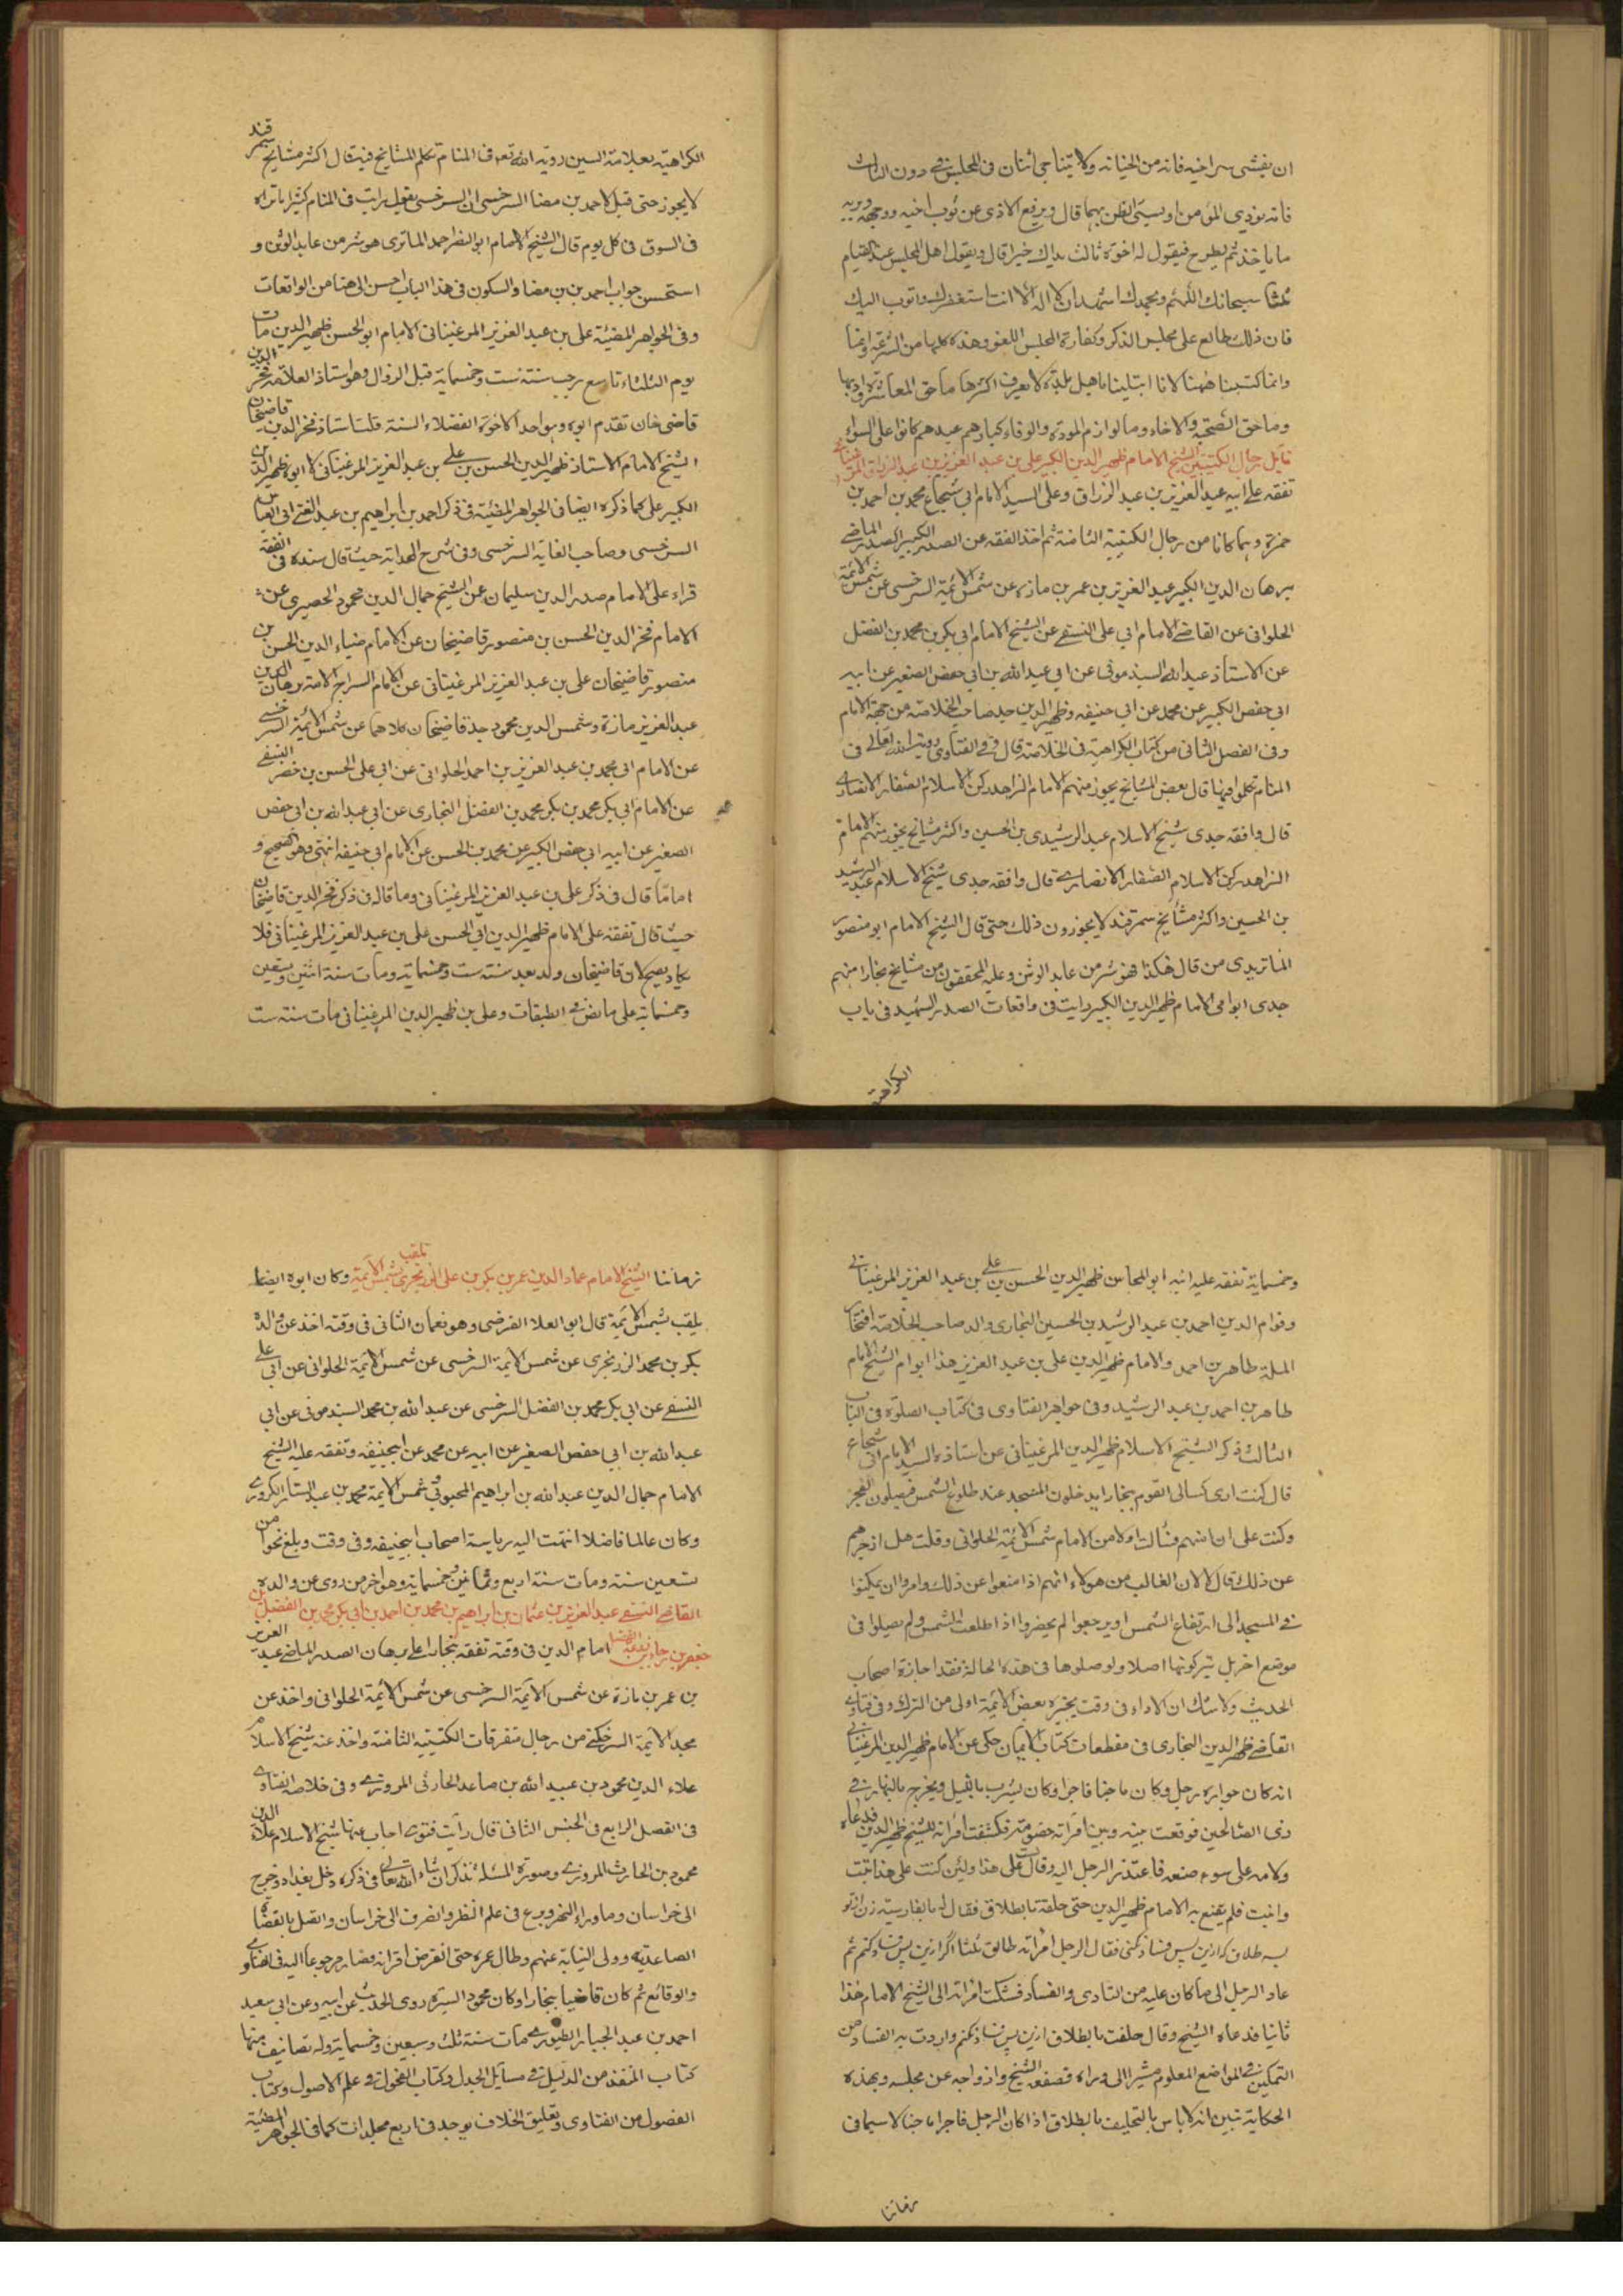 ان يفشى سر اخيه فانه من الخيانة ولا يتناجى اثنان فى المجلس دون الثالث
فانه يوذي المؤمن او يسيئ الظن بهما قال ويرفع الاذى عن ثوب اخيه ووجهه ويريه
ما ياخذ ثم يطرح فيقول له اخوه نالت يداك خيرا قال ويقول اهل المجلس عند القيام
ثلثا سبحانك اللهم وبحمدك اشهد ان لا اله الا انت استغفرك واتوب اليك
فان ذلك طالع على مجلس الذكر وكفارة المجلس اللغو وهذه كلها من الشرعة
وانما كتبنا ههنا لانا ابتلينا باهل بلدة لا يعرف اكثرها ما حق المعاشرة
وما حق الصحبة والاخاء وما لوازم المودة والوفاء كبارهم عبدهم كانوا على السواء
الشيخ الامام ظهير الدين الكبير على بن عبد العزيز بن عبد الرزاق المرغينانى
تفقه على ابيه عبد العزيز بن عبد الرزاق وعلى السيد الامام ابى شجاع محمد بن احمد بن
حمزة وهما كانا من رجال الكتيبة الثامنة ثم اخذ الفقه عن الصدر الكبير الصدر الماضى
برهان الدين الكبير عبد العزيز بن عمر بن مازه عن شمس الائمة السرخسى عن شمس الائمة
الحلوانى عن القاضى الامام ابي على النسفى عن الشيخ الامام ابى بكر بن محمد بن الفضل
عن الاستاذ عبد الله السبذمونى عن ابي عبد الله بن ابى حفص الصغير عن ابيه
ابى حفص الكبير عن محمد عن ابى حنيفه وظهير الدين جد صاحب الخلاصة من جهة الام
وفى الفصل الثانى من كتاب الكراهية فى الخلاصة قال وفى الفتاوى رؤية الله تعالى فى
المنام تكلموا فيها قال بعض المشايخ يجوز منهم الامام الزاهد ركن الاسلام الصفار الانصارى
قال وافقه جدى شيخ الاسلام عبد الرشيدى بن الحسين واكثر مشايخ يجوز منهم الامام
الزاهد ركن الاسلام الصفار الانصارى قال وافقه جدى شيخ الاسلام عبد الرشيد
بن الحسين واكثر مشايخ سمرقند لا يجوزون ذلك حتى قال الشيخ الامام ابو منصور
الماتريدى من قال هكذا فهو شر من عابد الوثن وعليه المحققون من مشايخ بخارا منهم
جدى ابو امى الامام ظهير الدين الكبير رايت فى واقعات الصدر الشهيد فى باب
الكراهية
الكراهية بعلامة السين روية الله تع فى المنام تكلم المشايخ فيه قال اكثر مشايخ سمرقند
لا يجوز حتى قيل لاحمد بن مضا السرخسى ان السرخسى يقول رايت فى المنام كثيرا ما تراه
فى السوق فى كل يوم قال الشيخ الامام ابو النصر احمد الماترى هو شر من عابد الوثن و
استحسن جواب احمد بن بن مضا والسكون فى هذا الباب احسن الى هنا من الواقعات
وفى الجواهر المضيئة على بن عبد العزيز المرغينانى الامام ابو الحسن ظهير الدين مات
يوم الثلثاء تاسع رجب سنة ست وخمسماية قبل الزوال وهو استاذ العلامة فخر الدين
قاضى خان تقدم ابوه وهو احد الاخوة الفضلاء الستة قلت استاذ فخر الدين قاضيخان
الشيخ الامام الاستاذ ظهير الدين الحسن بن على بن عبد العزيز المرغينانى لا ابوه ظهير الدين
الكبير على كما ذكره ايضا فى الجواهر المضيئة فى ذكر احمد بن ابراهيم بن عبد الغنى ابى العباس
السرخسى وصاحب الغاية السرخسى وفى شرح الهداية حيث قال سنده فى الفقه
قراء على الامام صدر الدين سليمان عن الشيخ جمال الدين محمود الحصيرى عن
الامام فخر الدين الحسن بن منصور قاضيخان عن الامام ضياء الدين الحسن بن
منصور قاضيخان على بن عبد العزيز المرغينانى عن الامام السراج الامة برهان الدين
عبد العزيز مازة وشمس الدين محمود جد قاضيخان كلاهما عن شمس الائمة السرخسى
عن الامام ابى محمد بن عبد العزيز بن احمد الحلوانى عن ابى على الحسن بن خضر النسفى
عن الامام ابى بكر محمد بن بكر محمد بن الفضل البخارى عن ابي عبد الله بن ابى حفص
الصغير عن ابيه ابى حفص الكبير عن محمد بن الحسن عن الامام ابى حنيفه انتهى وهو الصحيح و
اما ما قال فى ذكر على بن عبد العزيز المرغينانى وما قاله فى ذكر فخر الدين قاضيخان
حيث قال تفقه على الامام ظهير الدين ابى الحسن على بن عبد العزيز المرغينانى فلا
يكاد يصح لان قاضيخان ولد بعد سنة ست وخمسماية ومات سنة اثنين وتسعين
وخمسماية على ما نص فى الطبقات وعلى بن ظهير الدين المرغينانى مات سنة ست
وخمسماية تفقه عليه ابنه ابو المحاسن ظهير الدين الحسن بن على بن عبد العزيز المرغينانى
وقوام الدين احمد بن عبد الرشيد بن الحسين البخارى والد صاحب الخلاصة افتخار
الملة طاهر بن احمد والامام ظهير الدين على بن عبد العزيز هذا ابو ام الشيخ الامام
طاهر بن احمد بن عبد الرشيد وفى جواهر الفتاوى فى كتاب الصلوة فى الباب
الثالث ذكر الشيخ الاسلام ظهير الدين المرغينانى عن استاذه السيد الامام ابى شجاع
قال كنت ارى كسالى القوم بخارا يدخلون المسجد عند طلوع الشمس فيصلون الفجر
وكنت على ان انهيهم فسألت اولا من الامام شمس الائمة الحلوانى وقلت هل ازجرهم
عن ذلك قال لا لان الغالب من هولاء انهم اذا منعوا عن ذلك وامروا ان يمكثوا
فى المسجد الى ارتفاع الشمس او يرجعوا لم يحضروا اذا طلعت الشمس ولم يصلوا فى
موضع اخر بل يتركونها اصلا ولو صلوها فى هذه الحالة فقد اجازه اصحاب
الحديث ولا شك ان الاداء فى وقت يجيزه بعض الائمة اولى من الترك وفى فتاوى
القاضى ظهير الدين البخارى فى مقطعات كتاب الايمان حكى عن الامام ظهير الدين المرغينانى
انه كان جواره رجل وكان ماجنا فاجرا وكان يشرب بالليل ويخرج بالنهار فى
ذى الصالحين فوقعت بينه وبين امرأته خصومة فكشفت امرأته للشيخ ظهير الدين فدعاه
ولامه على سوء صنعه فاعتذر الرجل اليه وقال على هذا ولئن كنت على هذا تبت
وانبت فلم يقنع به الامام ظهير الدين حتى حلفه بالطلاق فقال له بالفارسية زن از تو
بسه طلاق كه ازين پس فساد نكنى فقال الرجل امرأته طالق ثلثا اگر ازين پس فساد كنم ثم
عاد الرجل الى ما كان عليه من التمادى والفساد فشكت امرأته الى الشيخ الامام هذا
ثانيا فدعاه الشيخ وقال حلفت بالطلاق ازين پس فساد نكنم واردت به الفساد من
التمكين فى المواضع المعلوم مشيرا الى وراه فصفعه الشيخ وازواجه عن مجلسه وبهذه
الحكاية تبين انه لا باس بالتحليف بالطلاق اذا كان الرجل فاجرا ماجنا لا سيما فى
زماننا
زماننا الشيخ الامام عماد الدين عمر بن بكر بن على الزرنجرى يلقب بشمس الائمة وكان ابوه ايضا
يلقب بشمس الائمة قال ابو العلا الفرضى وهو نعمان الثانى فى وقته اخذ عن والده
بكر بن محمد الزرنجرى عن شمس الائمة السرخسى عن شمس الائمة الحلوانى عن ابى على
النسفى عن ابى بكر محمد بن الفضل السرخسى عن عبد الله بن محمد السبذمونى عن ابى
عبد الله بن ابي حفص الصغير عن ابيه عن محمد عن ابيحنيفه وتفقه عليه الشيخ
الامام جمال الدين عبد الله بن ابراهيم المحبوبى وشمس الائمة محمد بن عبد الستار الكردرى
وكان عالما فاضلا انتهت اليه رياسة اصحاب ابيحنيفه وفى وقت وبلغ نحوا من
تسعين سنة ومات سنة اربع وثمانين وخمسماية وهو اخر من روى عن والده
القاضى النسفى عبد العزيز بن عثمان بن ابراهيم بن محمد بن احمد بن ابى بكر محمد بن الفضل بن
جعفر بن رجاء بن امام الدين فى وقته تفقه ببخارا على برهان الصدر الماضى عبد العزيز
بن عمر بن مازة عن شمس الائمة السرخسى عن شمس الائمة الحلوانى واخذ عن
مجد الائمة السرخكتى من رجال متفرقات الكتيبة الثامنة واخذ عنه شيخ الاسلام
علاء الدين محمود بن عبيد الله بن صاعد الحارثى المروزى وفى خلاصة الفتاوى
فى الفصل الرابع فى الجنس الثانى قال رأيت فتوى اجاب عنها شيخ الاسلام علاء الدين
محمود بن الحارث المروزى وصورة المسئلة تذكر ان شاء الله تعالى فى ذكره دخل بغداد وخرج
الى خراسان وماوراء النهر وبرع فى علم النظر وانصرف الى خراسان واتصل بالقضاة
الصاعدية وولى النيابة عنهم وطال عمره حتى انقرض اقرانه فصار مرجوعا اليه فى الفتاوى
والوقائع ثم كان قاضيا ببخارا وكان محمود السيرة روى الحديث عن ابيه وعن ابي سعيد
احمد بن عبد الجبار الطيورى مات سنة ثلث وسبعين وخمسماية وله تصانيف منها
كتاب المنقذ من الدليل فى مسايل الجدل وكتاب الفحول فى علم الاصول وكتاب
الفصول من الفتاوى وتعليق الخلاف يوجد فى اربع مجلدات كما فى الجواهر المضيئة